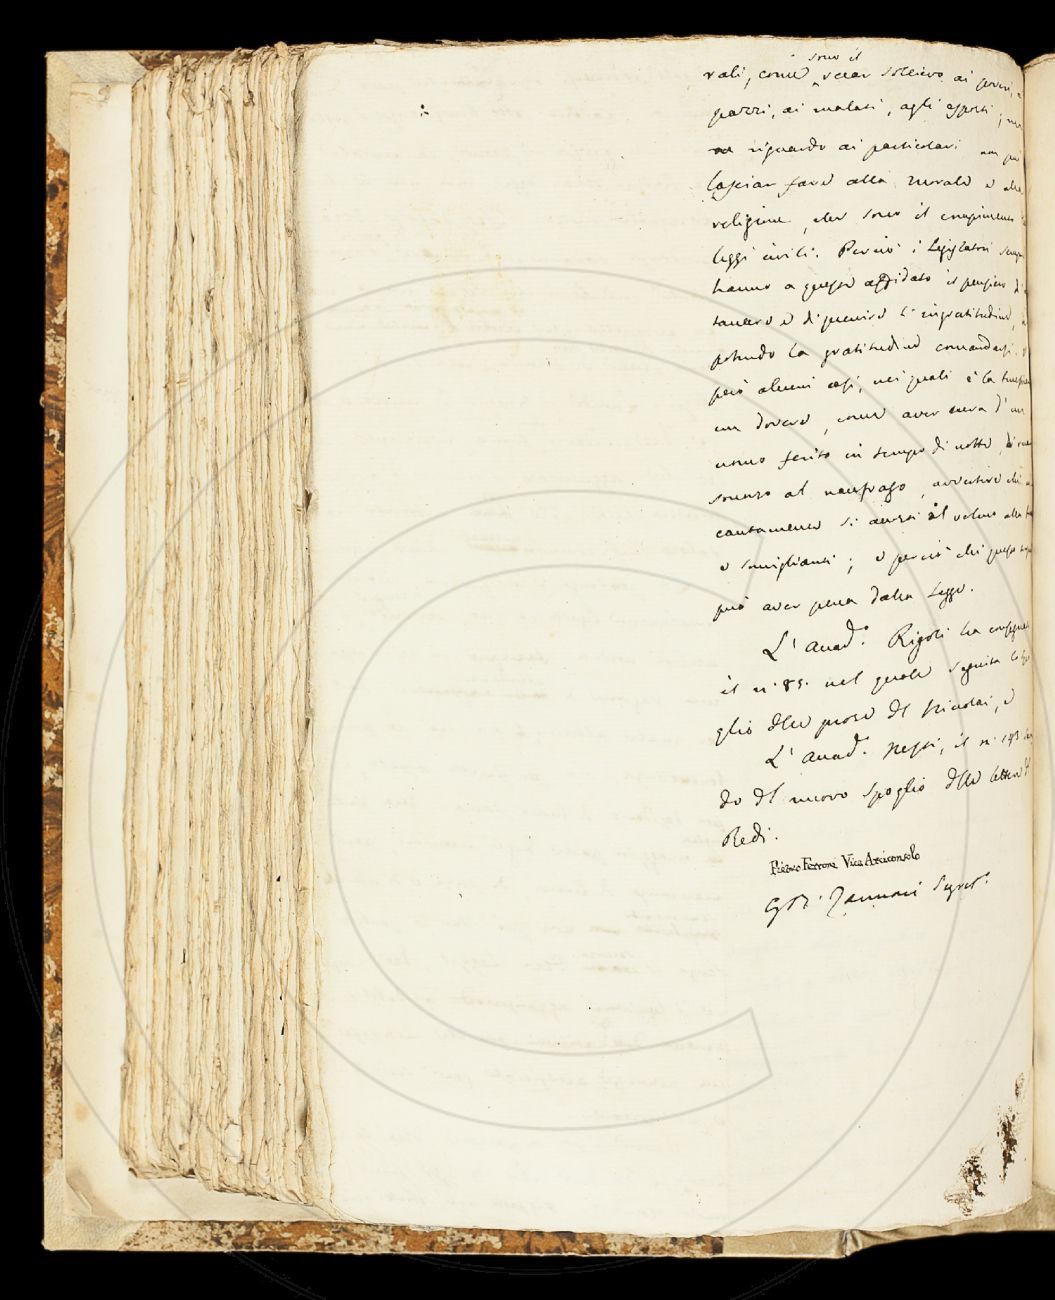 sono il
rali, come recar sollievo ai poveri, a
pazzi, ai malati, agli esposti; ma
riguardo ai particolari non può
lasciar fare alla morale e alla
religione, che sono il compimento
leggi civili. Perciò i Legislatori sempre
hanno a queste affidato il pensiero di
e di punire l'ingratitudine,
potendo la gratitudine comandarsi.
però alcuni casi, nei quali è la
un dovere, come aver cura d'un
uomo ferito in tempo di notte,
al naufrago, avvertire chi
cautamente si avvii al veleno alla
e somiglianti; e perciò chi queste
può aver pena dalla Legge.
L'Accad.º Rigoli ha consegnato
il n.º 85. nel quale seguita lo spo-
glio delle prose del Fiacchi, e
L'Accad.º Nesti, il n.º
do del nuovo spoglio delle lettere del
Redi.
Pietro Ferroni Vice Arciconsolo
G. B. Zannoni Segret.º